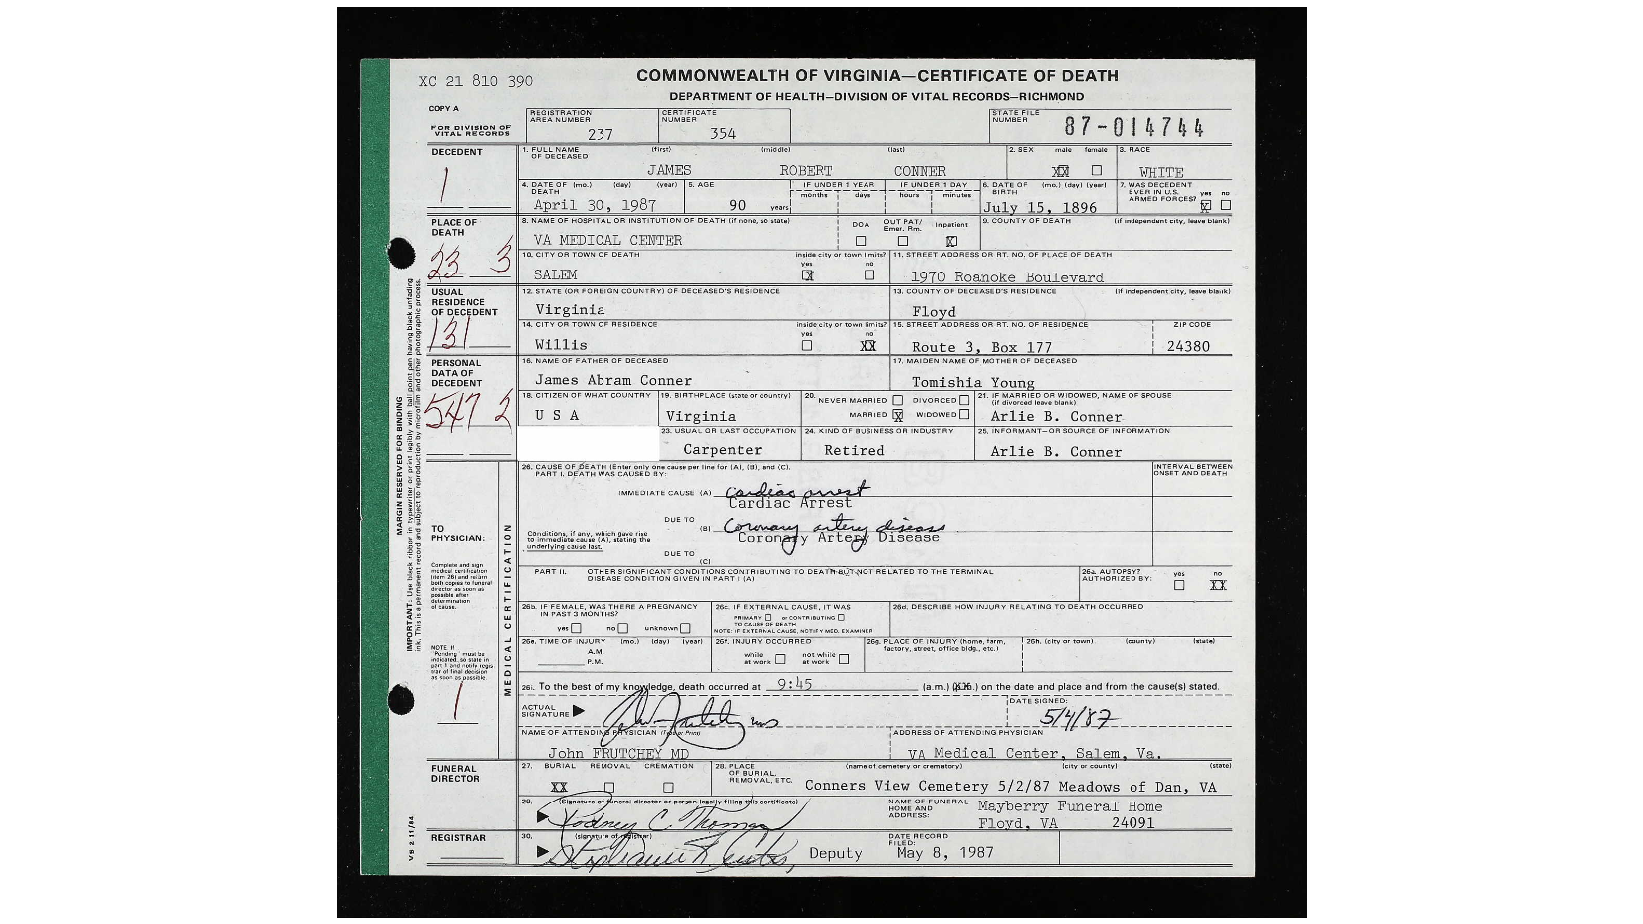 XC 21 810 390
COMMONWEALTH OF VIRGINIA—CERTIFICATE OF DEATH
DEPARTMENT OF HEALTH—DIVISION OF VITAL RECORDS—RICHMOND
COPY A
FOR DIVISION OF VITAL RECORDS
REGISTRATION AREA NUMBER 237
CERTIFICATE NUMBER 354
STATE FILE NUMBER 87-014744
DECEDENT
1
1. FULL NAME OF DECEASED (first) (middle) (last)
JAMES ROBERT CONNER
2. SEX male female
XX
3. RACE
WHITE
4. DATE OF DEATH (mo.) (day) (year)
April 30, 1987
5. AGE
90 years
IF UNDER 1 YEAR months days
IF UNDER 1 DAY hours minutes
6. DATE OF BIRTH (mo.) (day) (year)
July 15, 1896
7. WAS DECEDENT EVER IN U.S. ARMED FORCES? yes no
X
PLACE OF DEATH
23 3
8. NAME OF HOSPITAL OR INSTITUTION OF DEATH (if none, so state)
VA MEDICAL CENTER
DOA OUT PAT/ Emer. Rm. Inpatient
X
9. COUNTY OF DEATH (if independent city, leave blank)
10. CITY OR TOWN OF DEATH
SALEM
inside city or town limits? yes no
X
11. STREET ADDRESS OR RT. NO. OF PLACE OF DEATH
1970 Roanoke Boulevard
USUAL RESIDENCE OF DECEDENT
131
12. STATE (OR FOREIGN COUNTRY) OF DECEASED'S RESIDENCE
Virginia
13. COUNTY OF DECEASED'S RESIDENCE (if independent city, leave blank)
Floyd
14. CITY OR TOWN OF RESIDENCE
Willis
inside city or town limits? yes no
XX
15. STREET ADDRESS OR RT. NO. OF RESIDENCE
Route 3, Box 177
ZIP CODE
24380
PERSONAL DATA OF DECEDENT
547 2
16. NAME OF FATHER OF DECEASED
James Abram Conner
17. MAIDEN NAME OF MOTHER OF DECEASED
Tomishia Young
18. CITIZEN OF WHAT COUNTRY
U S A
19. BIRTHPLACE (state or country)
Virginia
20. NEVER MARRIED DIVORCED
MARRIED X WIDOWED
21. IF MARRIED OR WIDOWED, NAME OF SPOUSE (if divorced leave blank)
Arlie B. Conner
23. USUAL OR LAST OCCUPATION
Carpenter
24. KIND OF BUSINESS OR INDUSTRY
Retired
25. INFORMANT—OR SOURCE OF INFORMATION
Arlie B. Conner
MARGIN RESERVED FOR BINDING
IMPORTANT: Use black ribbon in typewriter or print legibly with ball point pen having black unfading
ink. This is a permanent record and subject to reproduction by microfilm and other photographic process.
TO PHYSICIAN:
Complete and sign medical certification (item 26) and return both copies to funeral director as soon as possible after determination of cause.
NOTE: If "Pending" must be indicated, so state in part 1 and notify registrar of final decision as soon as possible.
1
MEDICAL CERTIFICATION
26. CAUSE OF DEATH (Enter only one cause per line for (A), (B), and (C).
PART I. DEATH WAS CAUSED BY:
INTERVAL BETWEEN ONSET AND DEATH
IMMEDIATE CAUSE (A) Cardiac arrest
Cardiac Arrest
DUE TO (B) Coronary artery disease
Coronary Artery Disease
Conditions, if any, which gave rise to immediate cause (A), stating the underlying cause last.
DUE TO (C)
PART II. OTHER SIGNIFICANT CONDITIONS CONTRIBUTING TO DEATH BUT NOT RELATED TO THE TERMINAL DISEASE CONDITION GIVEN IN PART I (A)
26a. AUTOPSY? AUTHORIZED BY: yes no
XX
26b. IF FEMALE, WAS THERE A PREGNANCY IN PAST 3 MONTHS?
yes no unknown
26c. IF EXTERNAL CAUSE, IT WAS
PRIMARY or CONTRIBUTING
TO CAUSE OF DEATH
NOTE: IF EXTERNAL CAUSE, NOTIFY MED. EXAMINER
26d. DESCRIBE HOW INJURY RELATING TO DEATH OCCURRED
26e. TIME OF INJURY (mo.) (day) (year)
A.M
P.M.
26f. INJURY OCCURRED
while at work not while at work
26g. PLACE OF INJURY (home, farm, factory, street, office bldg., etc.)
26h. (city or town) (county) (state)
26i. To the best of my knowledge, death occurred at 9:45 (a.m.) (XX.) on the date and place and from the cause(s) stated.
ACTUAL SIGNATURE
DATE SIGNED:
5/4/87
NAME OF ATTENDING PHYSICIAN (Type or Print)
John FRUTCHEY MD
ADDRESS OF ATTENDING PHYSICIAN
VA Medical Center, Salem, Va.
FUNERAL DIRECTOR
27. BURIAL REMOVAL CREMATION
XX
28. PLACE OF BURIAL, REMOVAL, ETC. (name of cemetery or crematory) (city or county) (state)
Conners View Cemetery 5/2/87 Meadows of Dan, VA
29. (Signature of funeral director or person legally filing this certificate)
Rodney C. Thomas
NAME OF FUNERAL HOME AND ADDRESS:
Mayberry Funeral Home
Floyd, VA 24091
REGISTRAR
30. (signature of registrar)
Deputy
DATE RECORD FILED:
May 8, 1987
VS 2 11/84